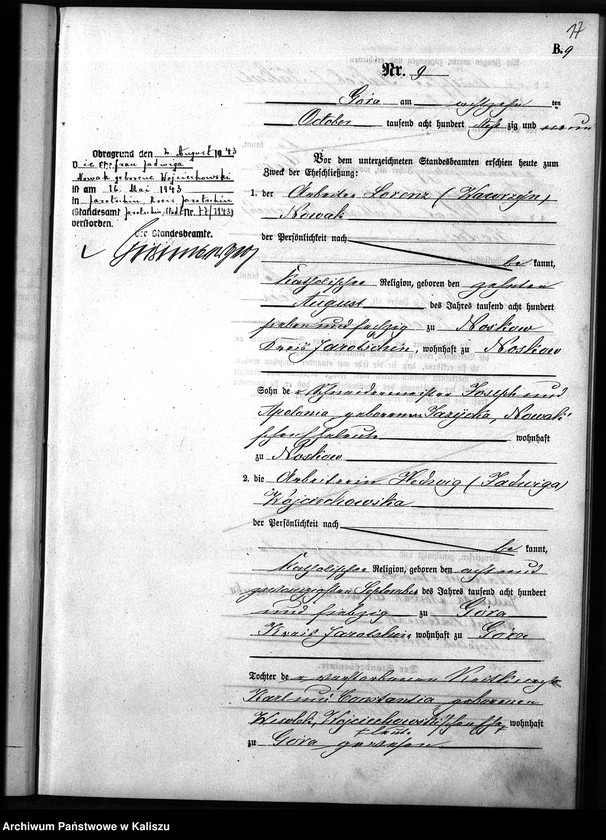 17
B.
9
Nr. 9
Gora am achtzehn ten
October tausend acht hundert neun
Vor dem unterzeichneten Standesbeamten erschien heute zum
Zweck der Eheschließung:
1. der Arbeiter Lorenz (Wawrzyn)
Nowak
der Persönlichkeit nach
be kannt,
katholischer Religion, geboren den zehnten
August des Jahres tausend acht hundert
sieben und sechzig zu Noskow
Kreis Jarotschin, wohnhaft zu Noskow
Sohn des Schneidermeister Joseph und
Apolonia geborenen Nowak'
schen Eheleute wohnhaft
zu Noskow
2. die Arbeiterin Hedwig (Jadwiga)
Wojciechowska
der Persönlichkeit nach
be kannt,
katholischer Religion, geboren den acht und
zwanzigsten September des Jahres tausend acht hundert
und siebzig zu Gora
Kreis Jarotschin, wohnhaft zu Gora
Tochter der verstorbenen
Karl und Constantia geborenen
Wojciechowski'schen Ehe wohnhaft
leute
zu Gora gewesen
Obragrund den 2. August 1943
Die Ehefrau Jadwiga
Nowak geborene Wojciechowski
ist am 16. Mai 1943
in Jarotschin, Kreis Jarotschin
(Standesamt Jarotschin-Stadt Nr. 77/1943)
verstorben.
Der Standesbeamte.
Archiwum Państwowe w Kaliszu